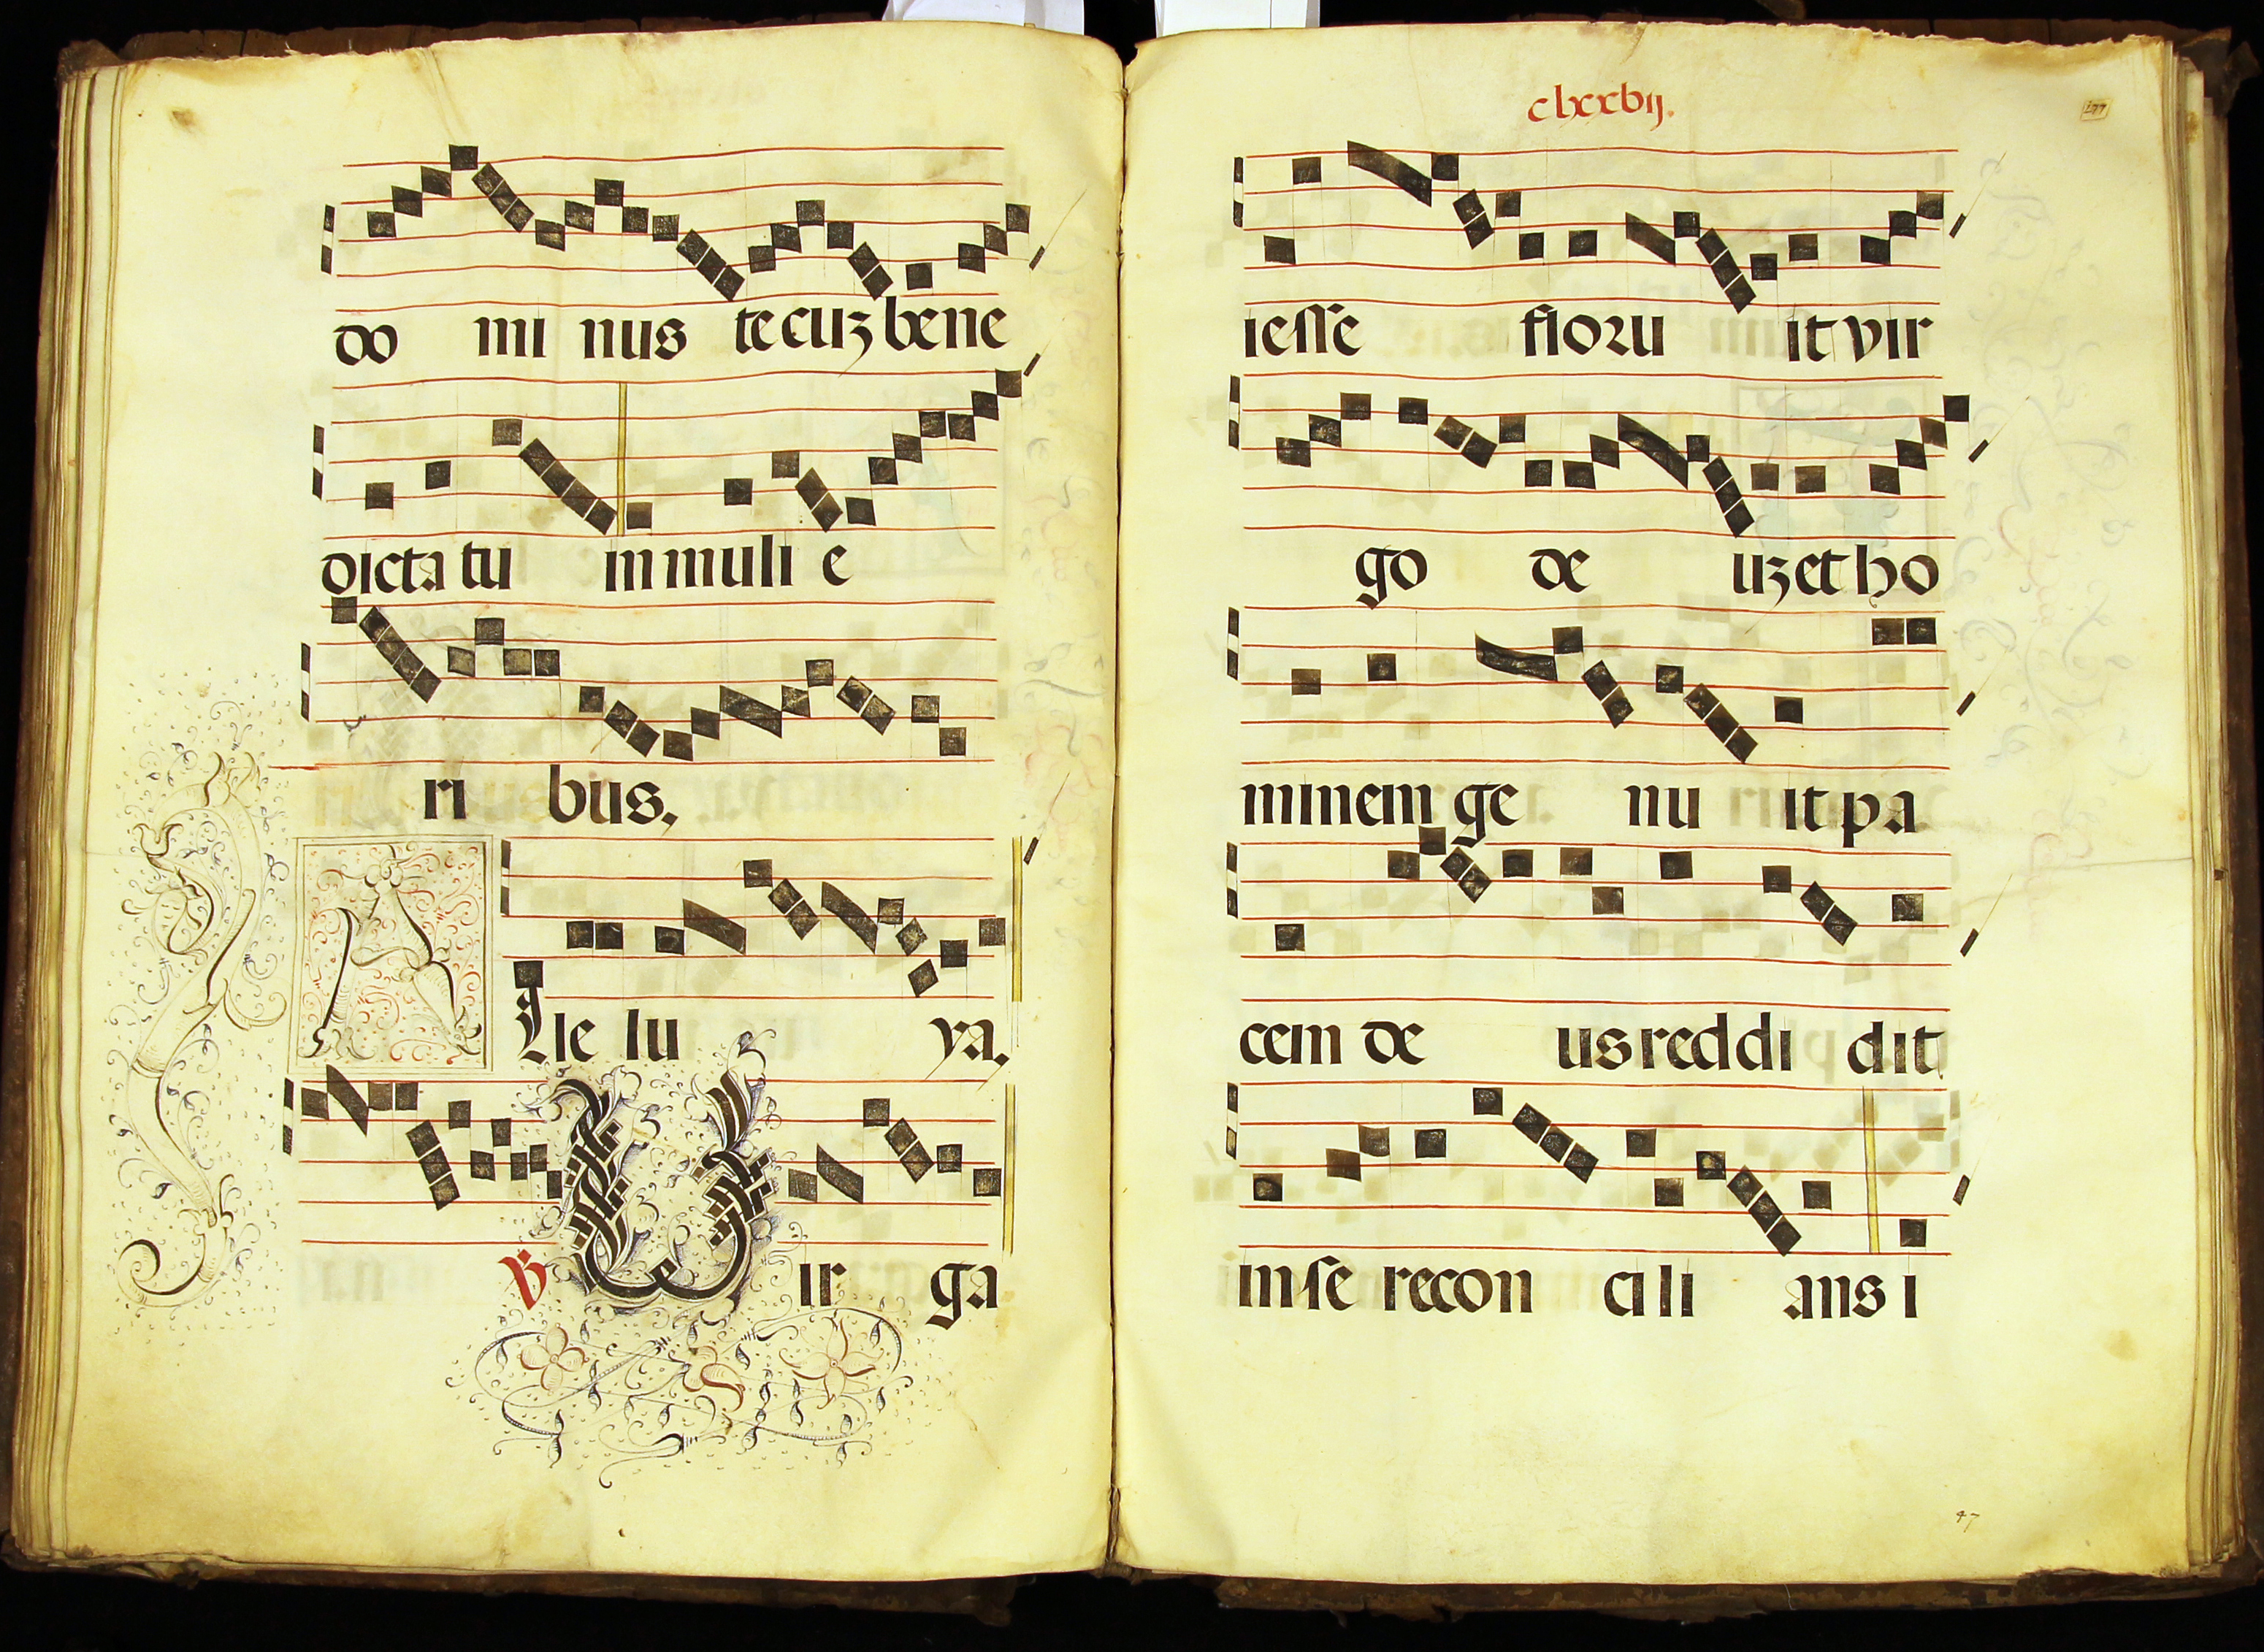 do mi nus te cuʒ bene
dicta tu in muli e
ri bus.
Alle lu ya.
℣ Uir ga
clxxvij.
177
iesse floru it vir
go de uʒ et ho
minem ge nu it pa
cem de us reddi dit
in se recon cili ans i
47